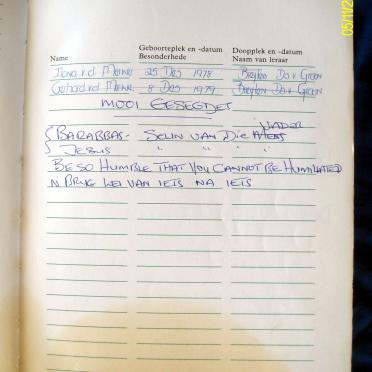 05/11/2
Geboorteplek en -datum Doopplek en -datum
Name Besonderhede Naam van leraar
25 Des 1978 Breyten
8 Des 1979 Breyten
MOOI GESEGDES
VADER
BARABBAS - SEUN VAN DIE MENS
JESUS " " " "
BE SO HUMBLE THAT YOU CANNOT BE HUMILIATED
'N BRUG LEI VAN IETS NA IETS